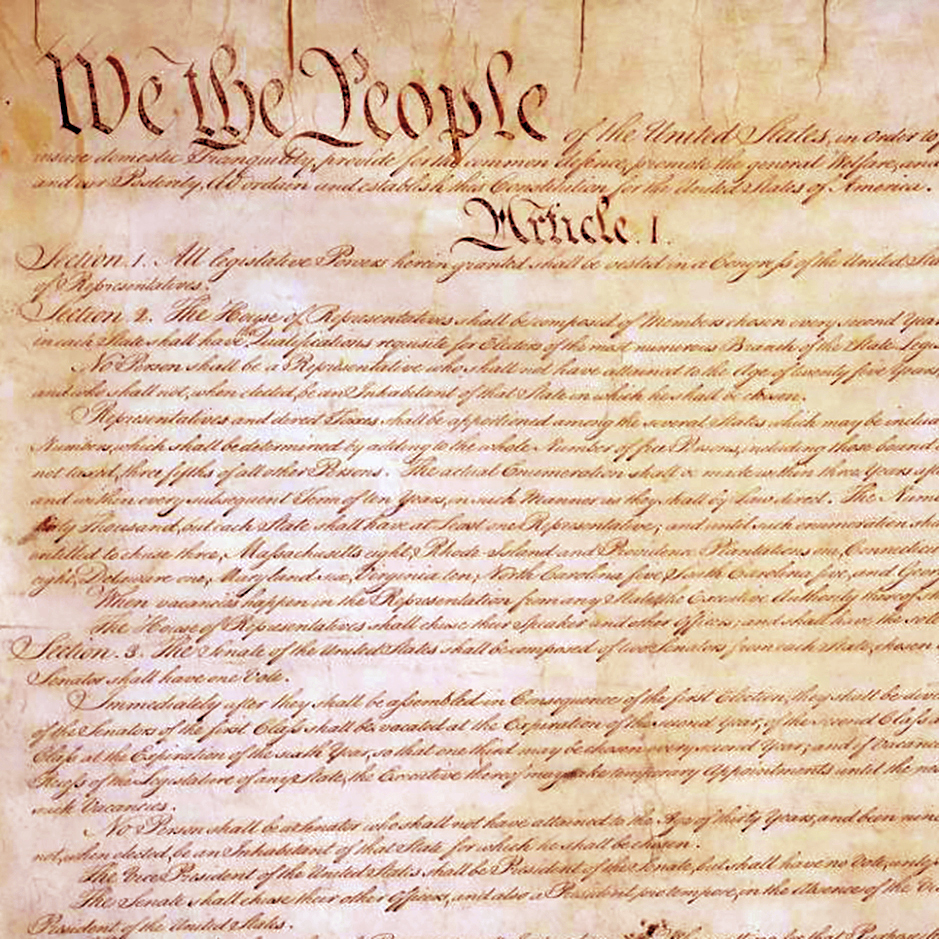 We the People of the United States, in order to
insure domestic Tranquility, provide for the common defence, promote the general Welfare, and
and our Posterity, do ordain and establish this Constitution for the United States of America.
Article. I.
Section. 1. All legislative Powers herein granted shall be vested in a Congress of the United Sta
of Representatives.
Section. 2. The House of Representatives shall be composed of Members chosen every second Year
in each State shall have Qualifications requisite for Electors of the most numerous Branch of the State Legis
No Person shall be a Representative who shall not have attained to the Age of twenty five Years,
and who shall not, when elected, be an Inhabitant of that State in which he shall be chosen.
Representatives and direct Taxes shall be apportioned among the several States which may be includ
Numbers, which shall be determined by adding to the whole Number of free Persons, including those bound
not taxed, three fifths of all other Persons. The actual Enumeration shall be made within three Years aft
and within every subsequent Term of ten Years, in such Manner as they shall by Law direct. The Num
thirty Thousand, but each State shall have at Least one Representative; and until such enumeration sha
entitled to chuse three, Massachusetts eight, Rhode-Island and Providence Plantations one, Connecticut
eight, Delaware one, Maryland six, Virginia ten, North Carolina five, South Carolina five, and Geor
When vacancies happen in the Representation from any State, the Executive Authority thereof sh
The House of Representatives shall chuse their Speaker and other Officers; and shall have the sole
Section. 3. The Senate of the United States shall be composed of two Senators from each State, chosen
Senator shall have one Vote.
Immediately after they shall be assembled in Consequence of the first Election, they shall be divi
of the Senators of the first Class shall be vacated at the Expiration of the second Year, of the second Class
Class at the Expiration of the sixth Year, so that one third may be chosen every second Year; and if Vacanc
Recess of the Legislature of any State, the Executive thereof may make temporary Appointments until the ne
such Vacancies.
No Person shall be a Senator who shall not have attained to the Age of thirty Years, and been nine
not, when elected, be an Inhabitant of that State for which he shall be chosen.
The Vice President of the United States shall be President of the Senate, but shall have no Vote, unle
The Senate shall chuse their other Officers, and also a President pro tempore, in the Absence of the Vi
President of the United States.